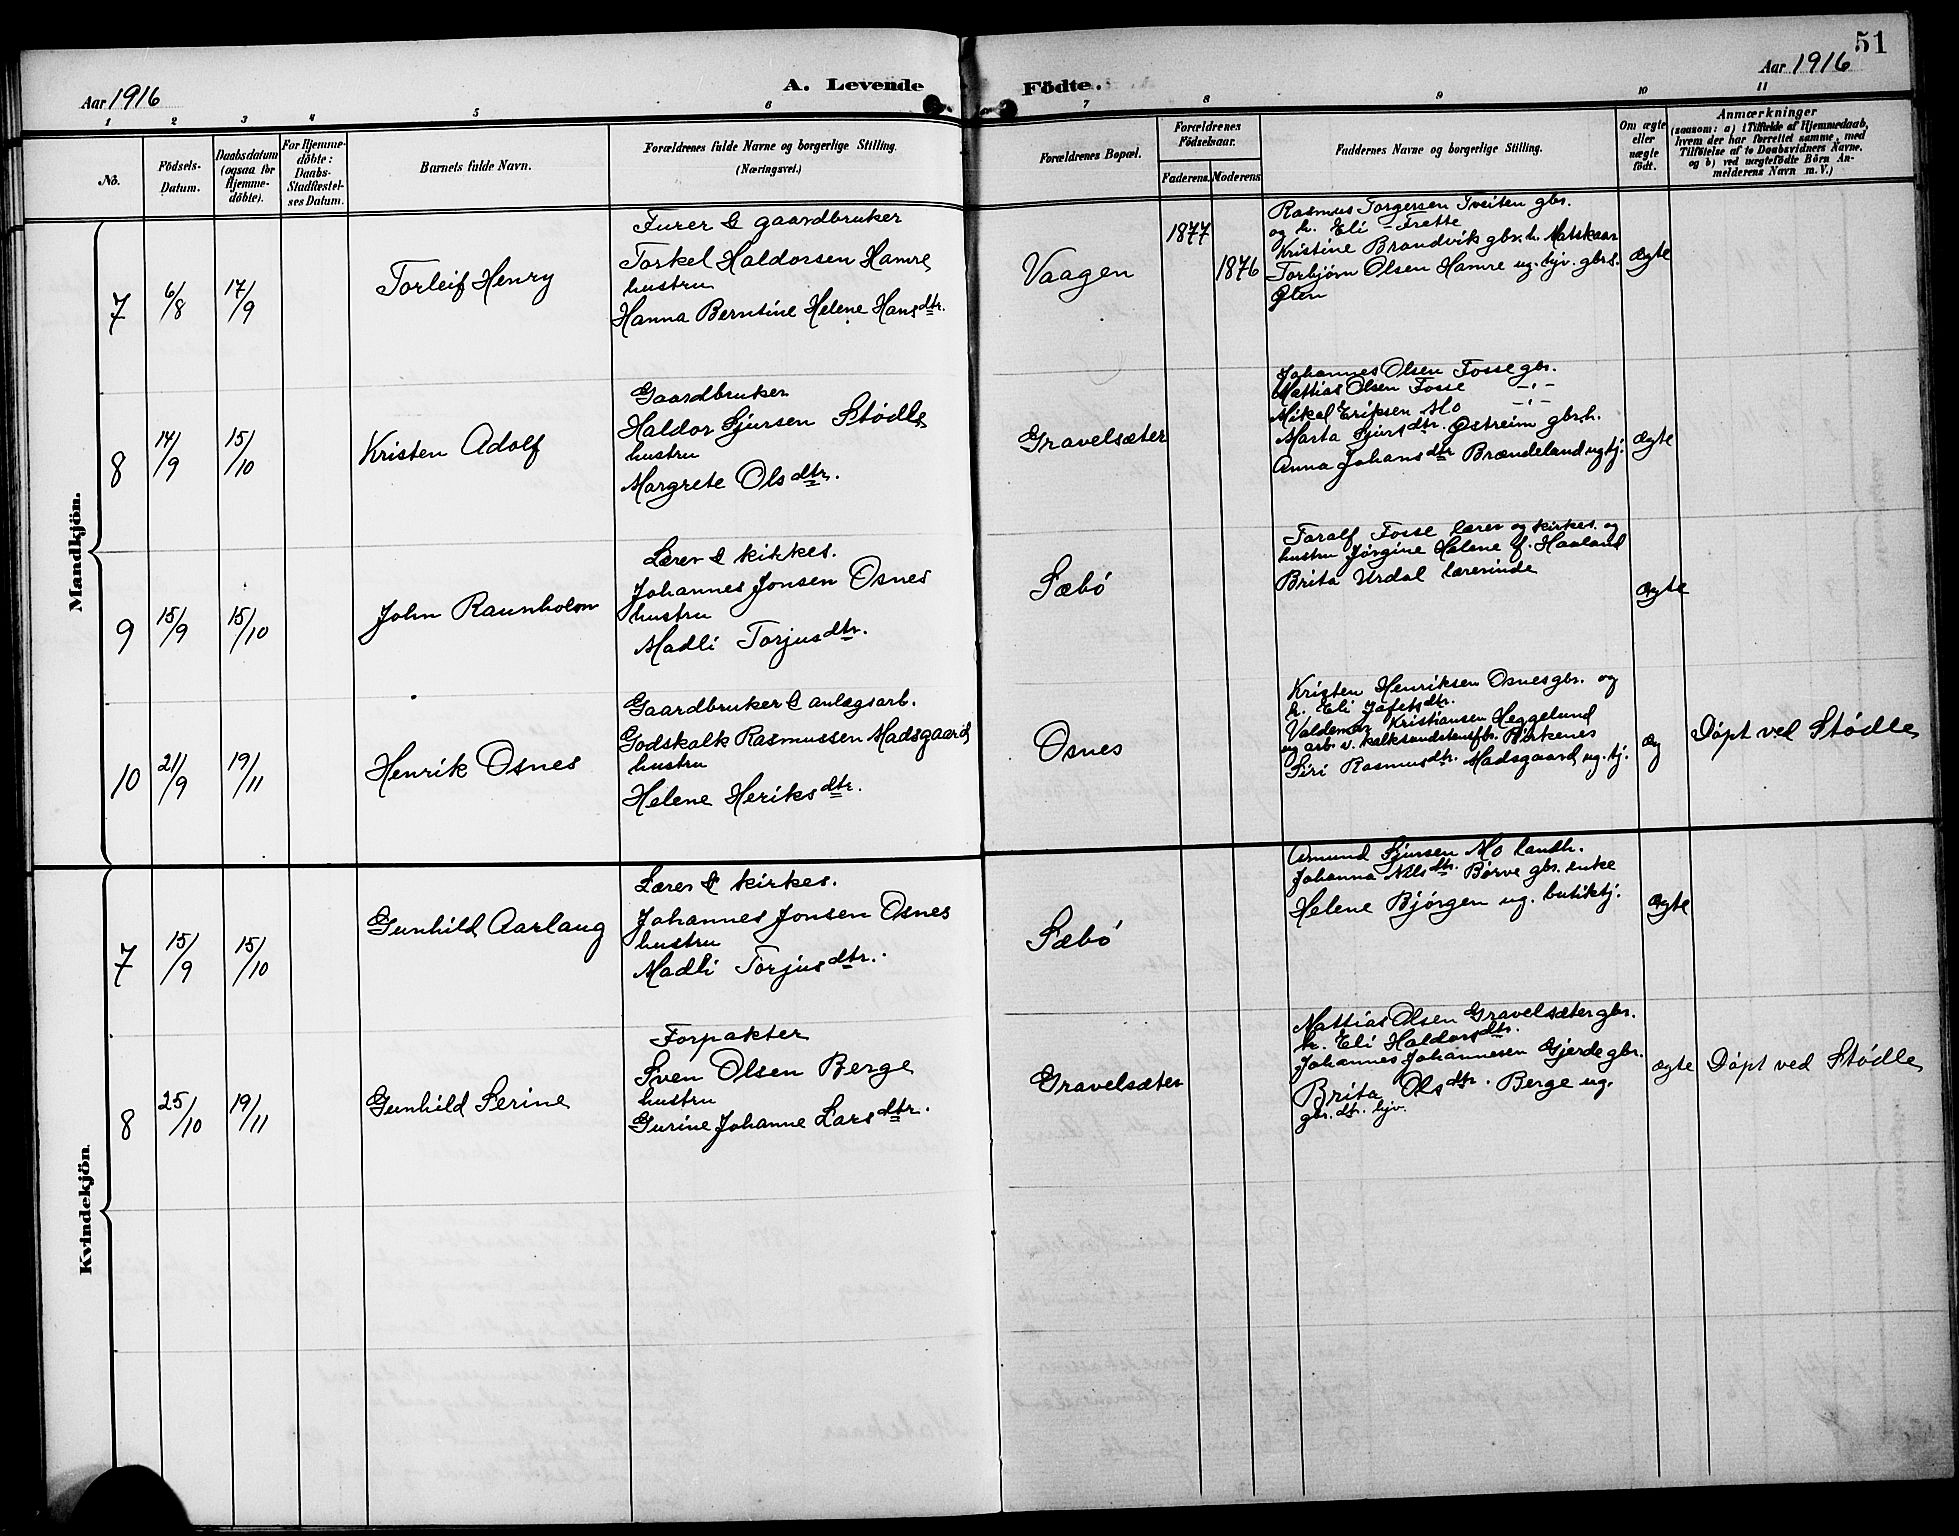 51
Aar 1916
A. Levende Födte.
Aar 1916
1 2 3 4 5 6 7 8 9 10 11
No.
Födsels-
Datum.
Daabsdatum
(ogsaa for
Hjemme-
döbte).
For Hjemme-
döbte:
Daabs-
Stadfæstel-
ses Datum.
Barnets fulde Navn.
Forældrenes fulde Navne og borgerlige Stilling.
(Næringsvei.)
Forældrenes Bopæl.
Forældrenes
Födselsaar.
Faderens. Moderens.
Faddernes Navne og borgerlige Stilling.
Om ægte
eller
uægte
födt.
Anmærkninger
(saasom: a) i Tilfælde af Hjemmedaab,
hvem der har forrettet samme, med
Tilföielse af to Daabsvidners Navne.
og b) ved uægtefödte Börn An-
melderens Navn m. V.)
Mandkjön.
7
6/8
17/9
Torleif Henry
Furer & gaardbruker
Torkel Haldorsen Hamre
hustru
Hanna Berntine Helene Hansdtr.
Vaagen
1877
1876
Rasmus Torgersen Tveiten gbr.
og h. Eli - Frette
Kristine Brandvik gbr. h. Matskaar
Torbjørn Olsen Hamre ug. hjv. gbrs.
Ølen
ægte
8
14/9
15/10
Kristen Adolf
Gaardbruker
Haldor Sjursen Stødle
hustru
Margrete Olsdtr.
Gravelsæter
Johannes Olsen Fosse gbr.
Mattias Olsen Fosse -"-
Mikal Eriksen Mo -"-
Marta Sjursdtr. Østreim gbrh.
Anna Johansdtr Brændeland ug tj.
ægte
9
15/9
15/10
John Raunholm
Lærer & kirkes.
Johannes Jonsen Osnes
hustru
Madli Torjusdtr.
Sæbø
Taralf Fosse lærer og kirkes. og
hustru Jørgine Helene f. Haaland
Brita Urdal lærerinde
ægte
10
21/9
19/11
Henrik Osnes
Gaardbruker & anlægsarb.
Godskalk Rasmussen Madsgaard
hustru
Helene Heriksdtr.
Osnes
Kristen Henriksen Osnes gbr. og
h. Eli Jafetsdtr.
Valdemar Kristiansen Heggelund
ug arb. v. kalksandstensfbr. Birkenes
Siri Rasmusdtr. Madsgaard ug. tj.
æg
Døpt ved Stødle
Kvindekjön.
7
15/9
15/10
Gunhild Aarlaug
Lærer & kirkes.
Johannes Jonsen Osnes
hustru
Madli Torjusdtr.
Sæbø
Amund Sjursen Mo landh.
Johanna Nilsdtr. Børve gbr. enke
Helene Bjørgen ug. butiktj.
ægte
8
25/10
19/11
Gunhild Serine
Forpakter
Sven Olsen Berge
hustru
Gurine Johanne Larsdtr.
Gravelsæter
Mattias Olsen Gravelsæter gbr.
h. Eli Haldorsdtr.
Johannes Johannesen Gjerde gbr.
Brita Olsdtr. Berge ug.
gbr. dtr. hjv.
ægte
Døpt ved Stødle